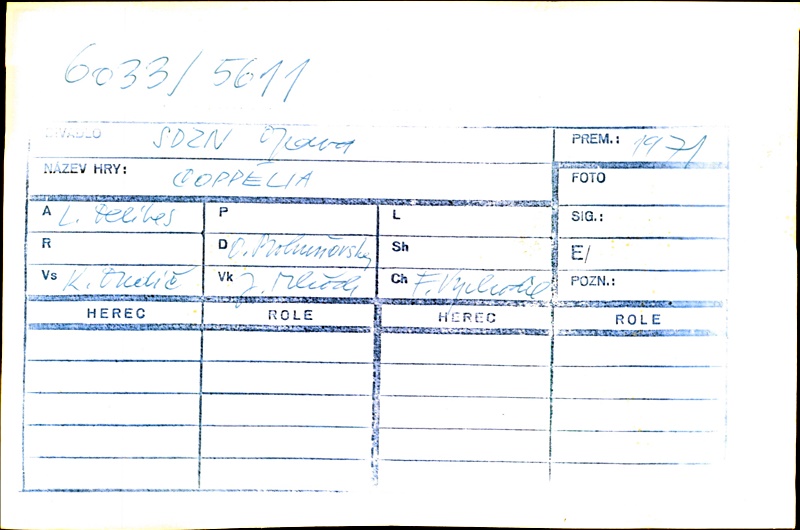 6033/5611
DIVADLO SDZN Opava PREM.: 1971
NÁZEV HRY: COPPÉLIA FOTO
A L. Delibes P L SIG.:
R D O. Bohuňovský Sh E/
Vs K. Vk J. Ch F. Vychodil POZN.:
HEREC ROLE HEREC ROLE